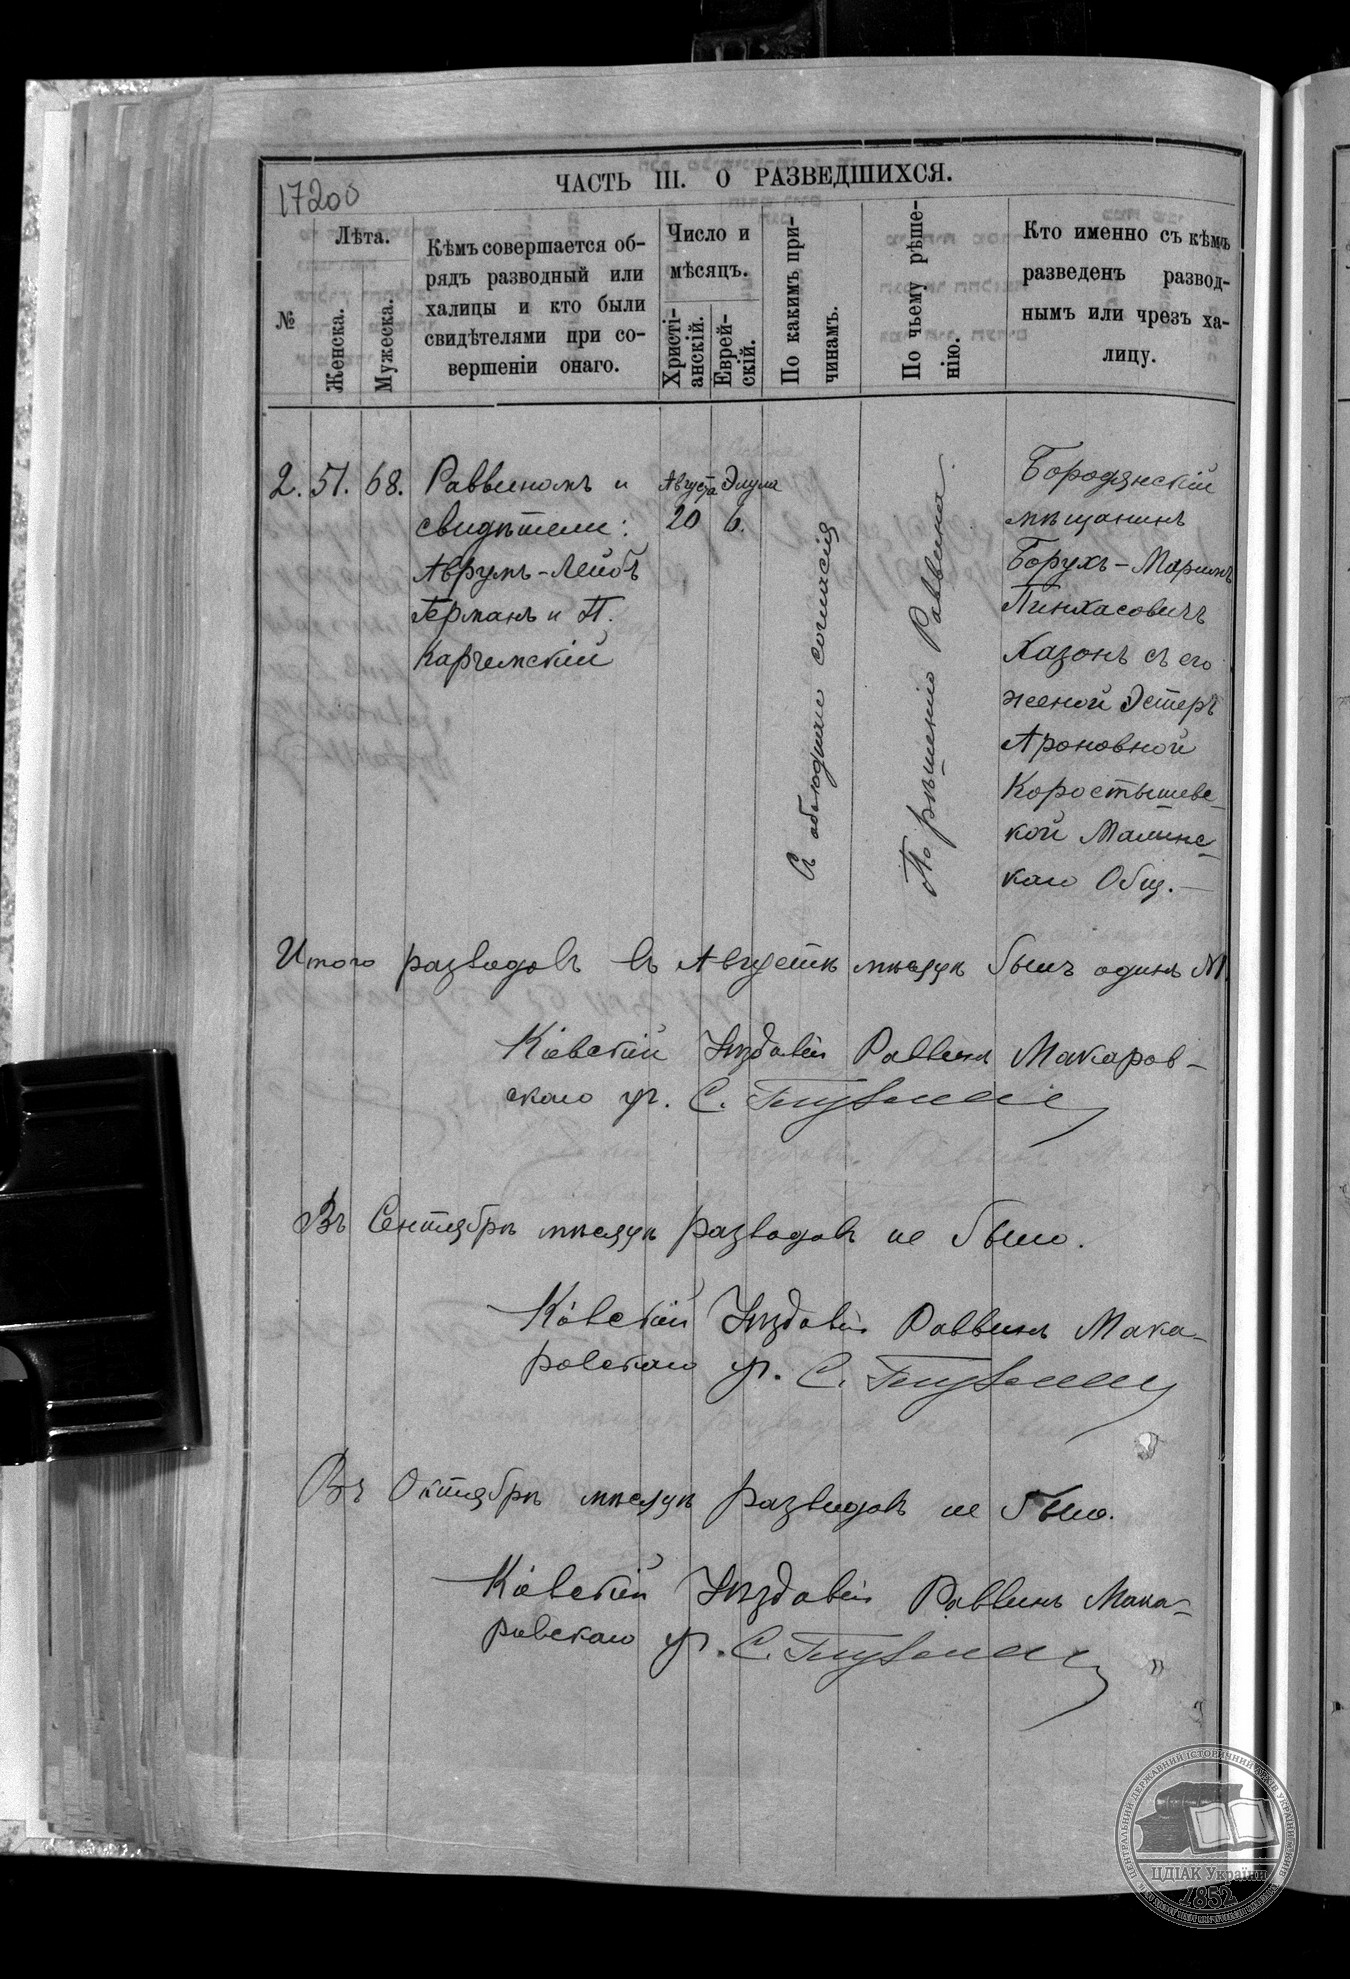 17200
ЧАСТЬ III. О РАЗВЕДШИХСЯ.
№
Лѣта.
Женска.
Мужеска.
Кѣмъ совершается об-
рядъ разводный или
халицы и кто были
свидѣтелями при со-
вершеніи онаго.
Число и
мѣсяцъ.
Христі-
анскій.
Еврей-
скій.
По какимъ при-
чинамъ.
По чьему рѣше-
нію.
Кто именно съ кѣмъ
разведенъ развод-
нымъ или чрезъ ха-
лицу.
2. 51. 68.
Раввиномъ и
свидѣтели:
Аврумъ-Лейбъ
Германъ и П.
Карчемскій
Августа Элула
20 6.
Съ обоюднаго согласія
По рѣшенію Раввина.
Бородянскій
мѣщанинъ
Борухъ-Маримъ
Пинхасовичъ
Хазонъ съ его
женой Эстеръ
Ароновной
Коростышевс-
кой Малинс-
каго Общ.—
Итого разводовъ въ Августѣ мѣсяцѣ былъ одинъ №1.
Кіевскій Уѣздовый Раввинъ Макаров-
скаго уч. С.
Въ Сентябрѣ мѣсяцѣ разводовъ не было.
Кіевскій Уѣздовый Раввинъ Мака-
ровскаго уч. С.
Въ Октябрѣ мѣсяцѣ разводовъ не было.
Кіевскій Уѣздовый Раввинъ Мака-
ровскаго уч. С.
ЦЕНТРАЛЬНИЙ ДЕРЖАВНИЙ ІСТОРИЧНИЙ АРХІВ УКРАЇНИ
ЦДІАК України
1852